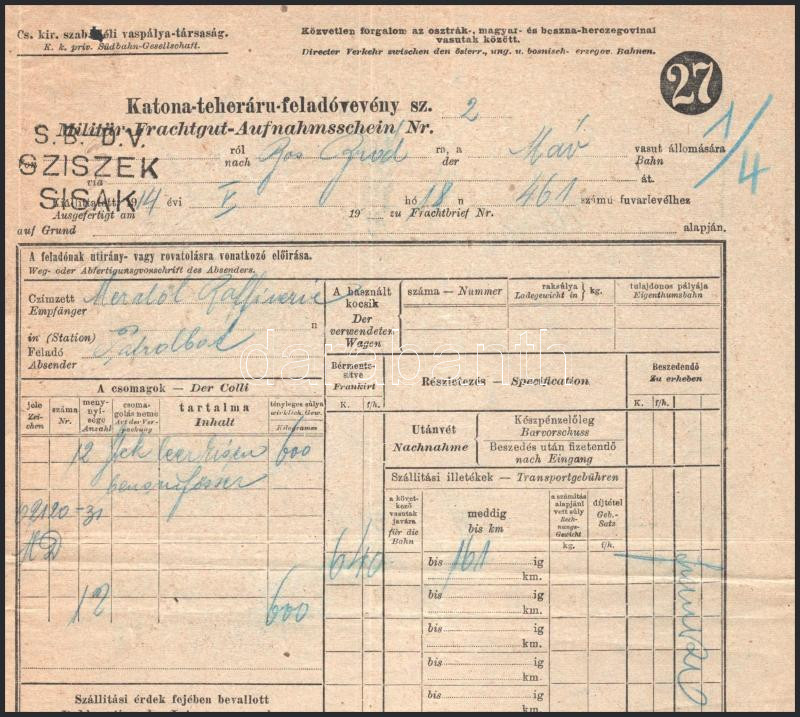 Cs. kir. szab. déli vaspálya-társaság.
K. k. priv. Südbahn-Gesellschaft.
Közvetlen forgalom az osztrák-, magyar- és boszna-herczegovinai
vasutak között.
Directer Verkehr zwischen den österr., ung. u. bosnisch-herzegov. Bahnen.
27
Katona-teheráru-feladóvevény sz. 2
Militär-Frachtgut-Aufnahmsschein Nr.
1/4
S.B. D.V.
SZISZEK
SISAK
von ról Bos Brod ra, a Máv vasut állomására
nach der Bahn
via át.
Kiállittatott 1914 évi V hó 18 n 461 számu fuvarlevélhez
Ausgefertigt am 19 zu Frachtbrief Nr.
auf Grund alapján.
A feladónak utirány- vagy rovatolásra vonatkozó előirása.
Weg- oder Abfertigungsvorschrift des Absenders.
Czimzett
Empfänger
in (Station) n
Feladó
Absender
A használt
kocsik
Der
verwendeten
Wagen
száma — Nummer
raksúlya
Ladegewicht in } kg.
tulajdonos pályája
Eigenthumsbahn
A csomagok — Der Colli
jele
Zeichen
száma
Nr.
mennyisége
Anzahl
csomagolás neme
Art der Verpackung
tartalma
Inhalt
tényleges súlya
wirklich. Gew.
Kilogramm
12 600
12 600
Bérmentesitve
Frankirt
K. f/h.
640
Részletezés — Specification
Beszedendő
Zu erheben
K. f/h.
Utánvét
Nachnahme
Készpénzelőleg
Barvorschuss
Beszedés után fizetendő
nach Eingang
Szállitási illetékek — Transportgebühren
a következő
vasutak
javára
für die
Bahn
meddig
bis km
a számitás
alapjául
vett súly
Rechnungs-
Gewicht
kg.
díjtétel
Geb.-
Satz
f/h.
bis 161 ig
km.
bis ig
km.
bis ig
km.
bis ig
km.
bis ig
km.
Szállitási érdek fejében bevallott
darabanth